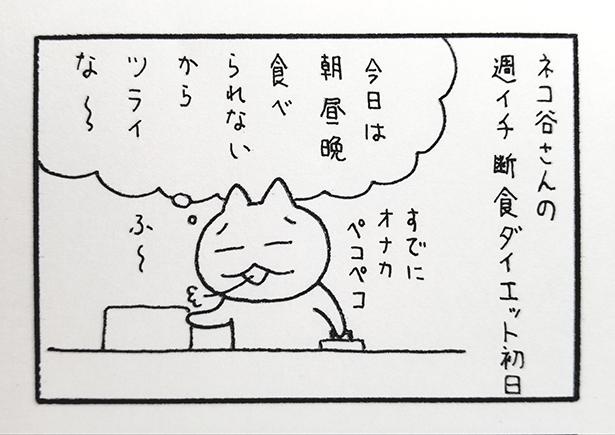 ネコ谷さんの
週イチ断食ダイエット初日
今日は
朝昼晩
食べ
られない
から
ツライ
な〜
すでに
オナカ
ペコペコ
ふ〜